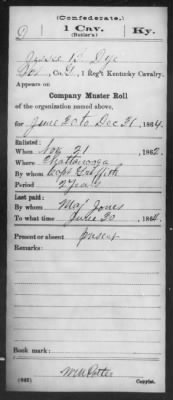 (Confederate.)
1 Cav. Ky.
(Butler's)
Dye
Co. G, 1 Reg't Kentucky Cavalry.
Appears on
Company Muster Roll
of the organization named above,
for June 30 to Dec 31, 1864.
Enlisted:
When Nov 21, 1862.
Where Chattanooga
By whom Capt Griffith
Period 2 Years
Last paid:
By whom Maj Jones
To what time June 30, 1864.
Present or absent Present
Remarks:
Book mark:
(642) Copyist.